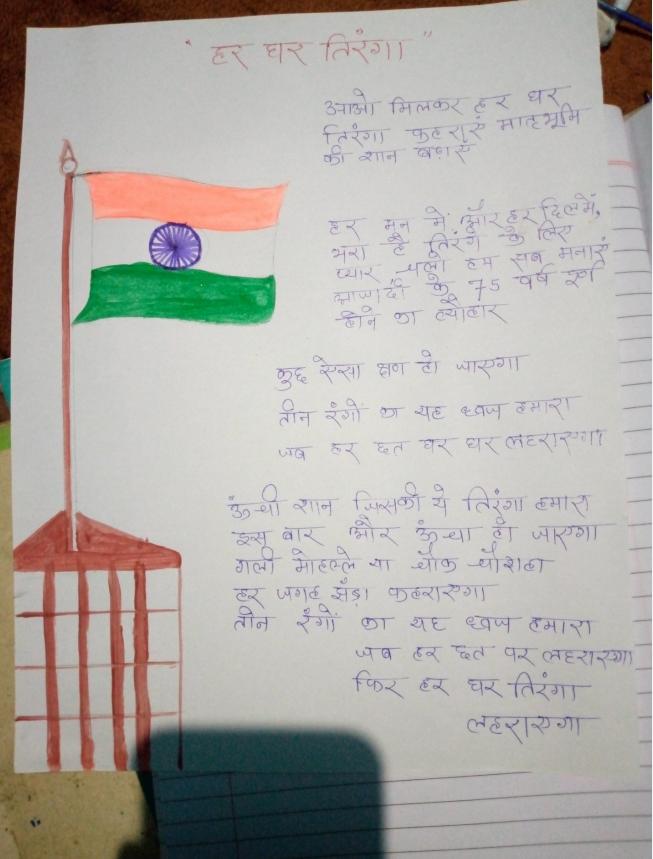 "हर घर तिरंगा"
आओ मिलकर हर घर
तिरंगा फहराएं मातृभूमि
की शान बढ़ाएं
हर मन में और हर दिल में,
भरा है तिरंगे के लिए
प्यार चलो हम सब मनाएं
आजादी के 75 वर्ष पूर्ण
होने का त्योहार
कुछ ऐसा क्षण हो जाएगा
तीन रंगों का यह ध्वज हमारा
जब हर छत पर घर लहराएगा
ऊंची शान जिसकी ये तिरंगा हमारा
इस बार और ऊंचा हो जाएगा
गली मोहल्ले या चौक चौराहा
हर जगह झंडा फहराएगा
तीन रंगों का यह ध्वज हमारा
जब हर छत पर लहराएगा
फिर हर घर तिरंगा
लहराएगा